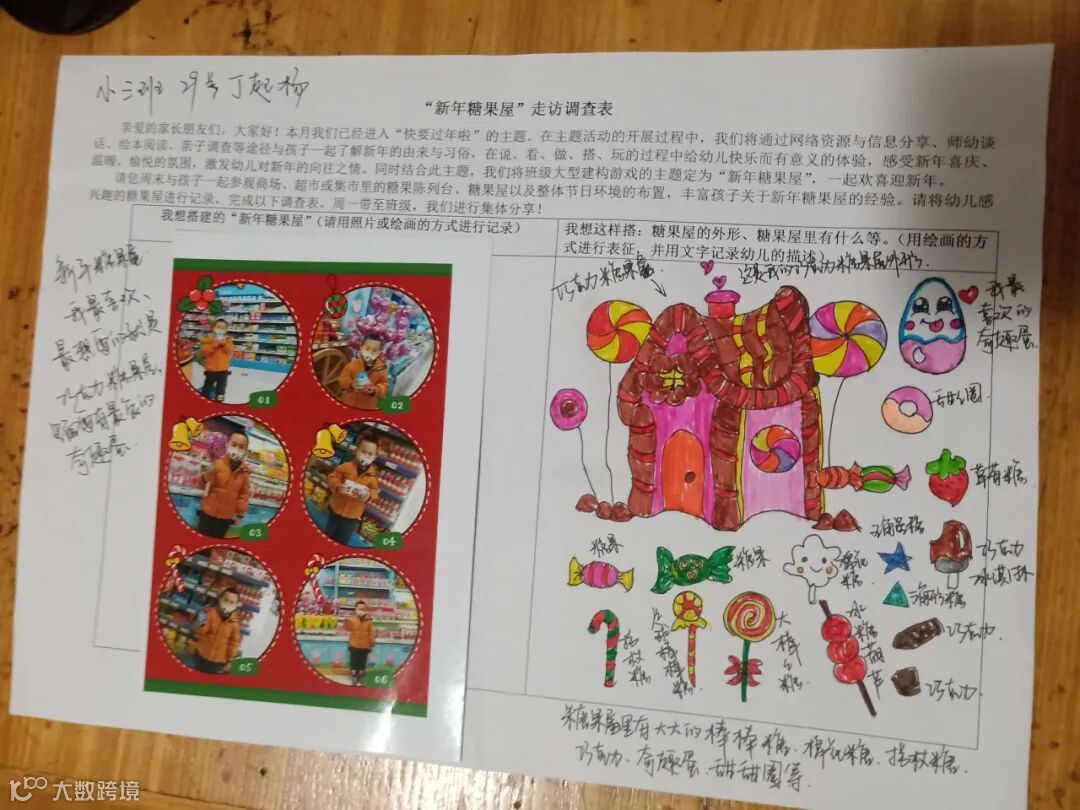 小三班 29号 丁起杨
“新年糖果屋”走访调查表
亲爱的家长朋友们，大家好！本月我们已经进入“快要过年啦”的主题。在主题活动的开展过程中，我们将通过网络资源与信息分享、师幼谈
话、绘本阅读、亲子调查等途径与孩子一起了解新年的由来与习俗，在说、看、做、搭、玩的过程中给幼儿快乐而有意义的体验，感受新年喜庆、
温暖、愉悦的氛围，激发幼儿对新年的向往之情。同时结合此主题，我们将班级大型建构游戏的主题定为“新年糖果屋”，一起欢喜迎新年。
请您周末与孩子一起参观商场、超市或集市里的糖果陈列台、糖果屋以及整体节日环境的布置，丰富孩子关于新年糖果屋的经验。请将幼儿感
兴趣的糖果屋进行记录，完成以下调查表。周一带至班级，我们进行集体分享！
我想搭建的“新年糖果屋”（请用照片或绘画的方式进行记录）
我想这样搭：糖果屋的外形、糖果屋里有什么等。（用绘画的方
式进行表征，并用文字记录幼儿的描述）
新年糖果屋
我最喜欢、
最想要的就是
巧克力糖果屋，
里面有最爱的
奇趣蛋.
01
02
03
04
05
06
巧克力糖果屋
这是我的巧克力糖果屋
我最
喜欢的
奇趣蛋.
甜甜圈
草莓糖
糖果
糖果
棉花
糖
五角星糖
巧克力
冰淇淋
三角形糖
拐
杖
糖
棒
棒
糖
大
棒
棒
糖
冰
糖
葫
芦
巧克力
巧克力.
糖果屋里有大大的棒棒糖、棉花糖、拐杖糖、
巧克力、奇趣蛋、甜甜圈等
大数跨境